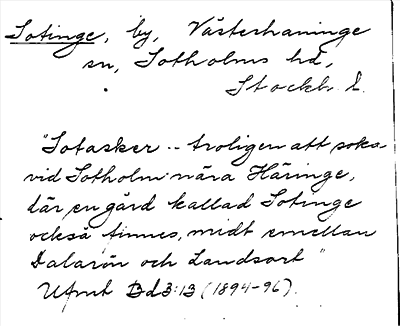 Sotinge, by, Västerhaninge
sn, Sotholms hd,
Stockh. l.
"Sotasker -- troligen att söka
vid Sotholm nära Häringe,
där en gård kallad Sotinge
också finnes, midt emellan
Dalarön och Landsort"
Dd3:13 (1894-96).